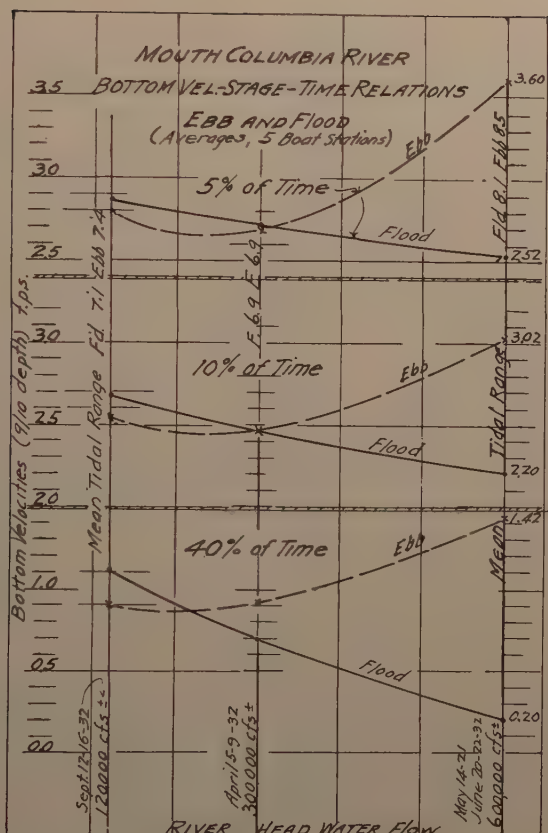 MOUTH COLUMBIA RIVER
BOTTOM VEL-STAGE-TIME RELATIONS
EBB AND FLOOD
(Averages, 5 Boat Stations)
3.5
3.0
2.5
3.0
2.5
2.0
1.0
0.5
0.0
Bottom Velocities (9/10 depth) f.p.s.
Mean Tidal Range Fd. 7.1 Ebb 7.4
F 6.9 E 6.9
Fld 8.1 Ebb 8.5
Mean Tidal Range
5% of Time
Ebb
Flood
3.60
2.52
10% of Time
Ebb
Flood
3.02
2.20
40% of Time
Ebb
Flood
1.42
0.20
Sept. 12-16-32
120000 cfs ±
April 5-9-32
300000 cfs ±
May 14-21
June 20-22-32
600000 cfs ±
RIVER HEAD WATER FLOW